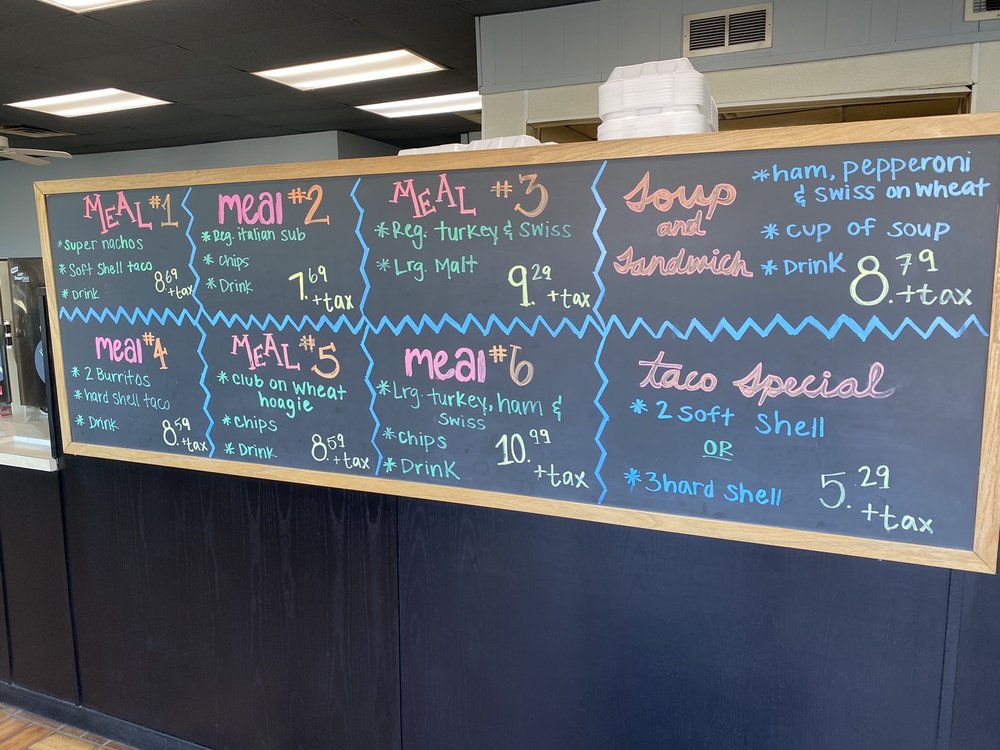 MEAL #1
*Super nachos
*Soft Shell taco
*Drink
8.69
+tax
meal #2
*Reg. italian sub
*chips
*Drink
7.69
+tax
MEAL #3
*Reg. turkey & swiss
*Lrg. Malt
9.29
+tax
Soup
and
Sandwich
*ham, pepperoni
& swiss on wheat
*cup of soup
*Drink
8.79
+tax
meal #4
*2 Burritos
*hard shell taco
*Drink
8.59
+tax
MEAL #5
*club on wheat
hoagie
*chips
*Drink
8.59
+tax
meal #6
*Lrg. turkey, ham &
swiss
*chips
*Drink
10.99
+tax
taco Special
*2 Soft Shell
OR
*3 hard shell
5.29
+tax